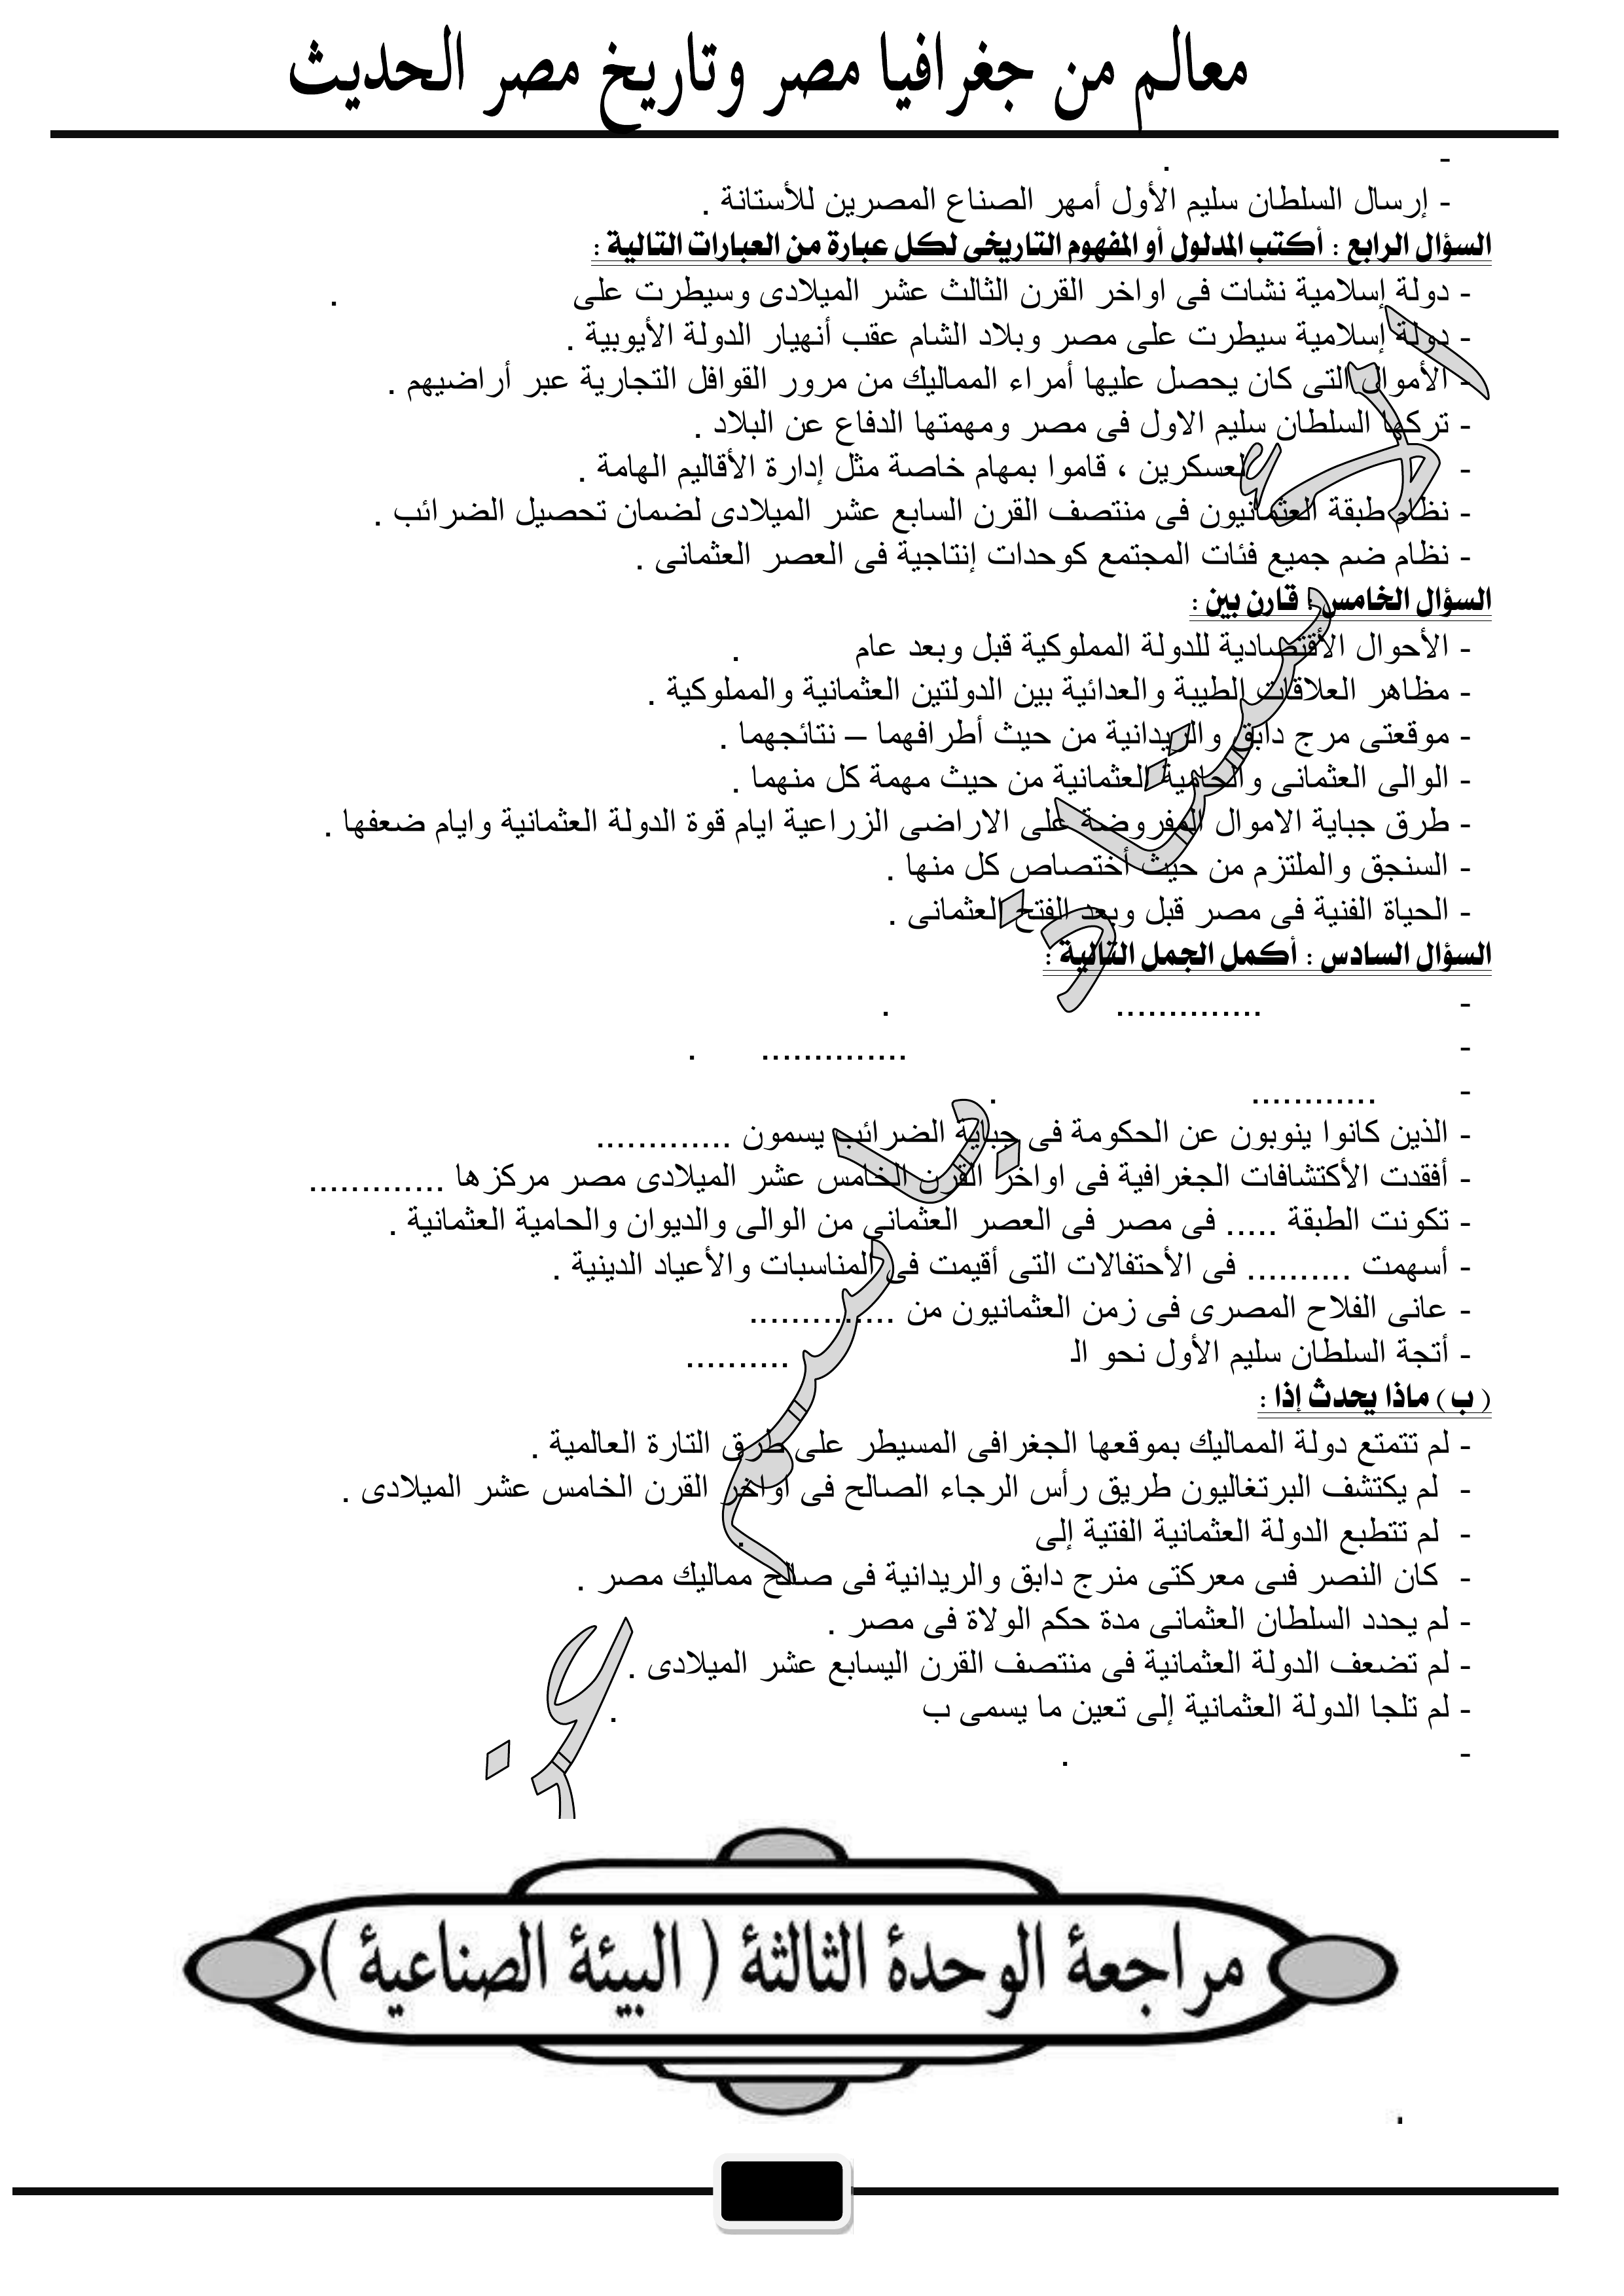 معالم من جغرافيا مصر وتاريخ مصر الحديث
- .
- إرسال السلطان سليم الأول أمهر الصناع المصرين للأستانة .
السؤال الرابع : أكتب المدلول أو المفهوم التاريخى لكل عبارة من العبارات التالية :
- دولة إسلامية نشات فى اواخر القرن الثالث عشر الميلادى وسيطرت على .
- دولة إسلامية سيطرت على مصر وبلاد الشام عقب أنهيار الدولة الأيوبية .
- الأموال التى كان يحصل عليها أمراء المماليك من مرور القوافل التجارية عبر أراضيهم .
- تركها السلطان سليم الاول فى مصر ومهمتها الدفاع عن البلاد .
- لعسكرين ، قاموا بمهام خاصة مثل إدارة الأقاليم الهامة .
- نظام طبقة العثمانيون فى منتصف القرن السابع عشر الميلادى لضمان تحصيل الضرائب .
- نظام ضم جميع فئات المجتمع كوحدات إنتاجية فى العصر العثمانى .
السؤال الخامس : قارن بين :
- الأحوال الأقتصادية للدولة المملوكية قبل وبعد عام .
- مظاهر العلاقات الطيبة والعدائية بين الدولتين العثمانية والمملوكية .
- موقعتى مرج دابق والريدانية من حيث أطرافهما – نتائجهما .
- الوالى العثمانى والحامية العثمانية من حيث مهمة كل منهما .
- طرق جباية الاموال المفروضة على الاراضى الزراعية ايام قوة الدولة العثمانية وايام ضعفها .
- السنجق والملتزم من حيث أختصاص كل منها .
- الحياة الفنية فى مصر قبل وبعد الفتح العثمانى .
السؤال السادس : أكمل الجمل التالية :
- .............. .
- .............. .
- ............ .
- الذين كانوا ينوبون عن الحكومة فى جباية الضرائب يسمون .............
- أفقدت الأكتشافات الجغرافية فى اواخر القرن الخامس عشر الميلادى مصر مركزها .............
- تكونت الطبقة ..... فى مصر فى العصر العثمانى من الوالى والديوان والحامية العثمانية .
- أسهمت .......... فى الأحتفالات التى أقيمت فى المناسبات والأعياد الدينية .
- عانى الفلاح المصرى فى زمن العثمانيون من ..............
- أتجة السلطان سليم الأول نحو الـ ..........
( ب ) ماذا يحدث إذا :
- لم تتمتع دولة المماليك بموقعها الجغرافى المسيطر على طرق التارة العالمية .
- لم يكتشف البرتغاليون طريق رأس الرجاء الصالح فى اواخر القرن الخامس عشر الميلادى .
- لم تتطبع الدولة العثمانية الفتية إلى .
- كان النصر فىى معركتى منرج دابق والريدانية فى صالح مماليك مصر .
- لم يحدد السلطان العثمانى مدة حكم الولاة فى مصر .
- لم تضعف الدولة العثمانية فى منتصف القرن اليسابع عشر الميلادى .
- لم تلجا الدولة العثمانية إلى تعين ما يسمى ب .
- .
مراجعة الوحدة الثالثة ( البيئة الصناعية )
.